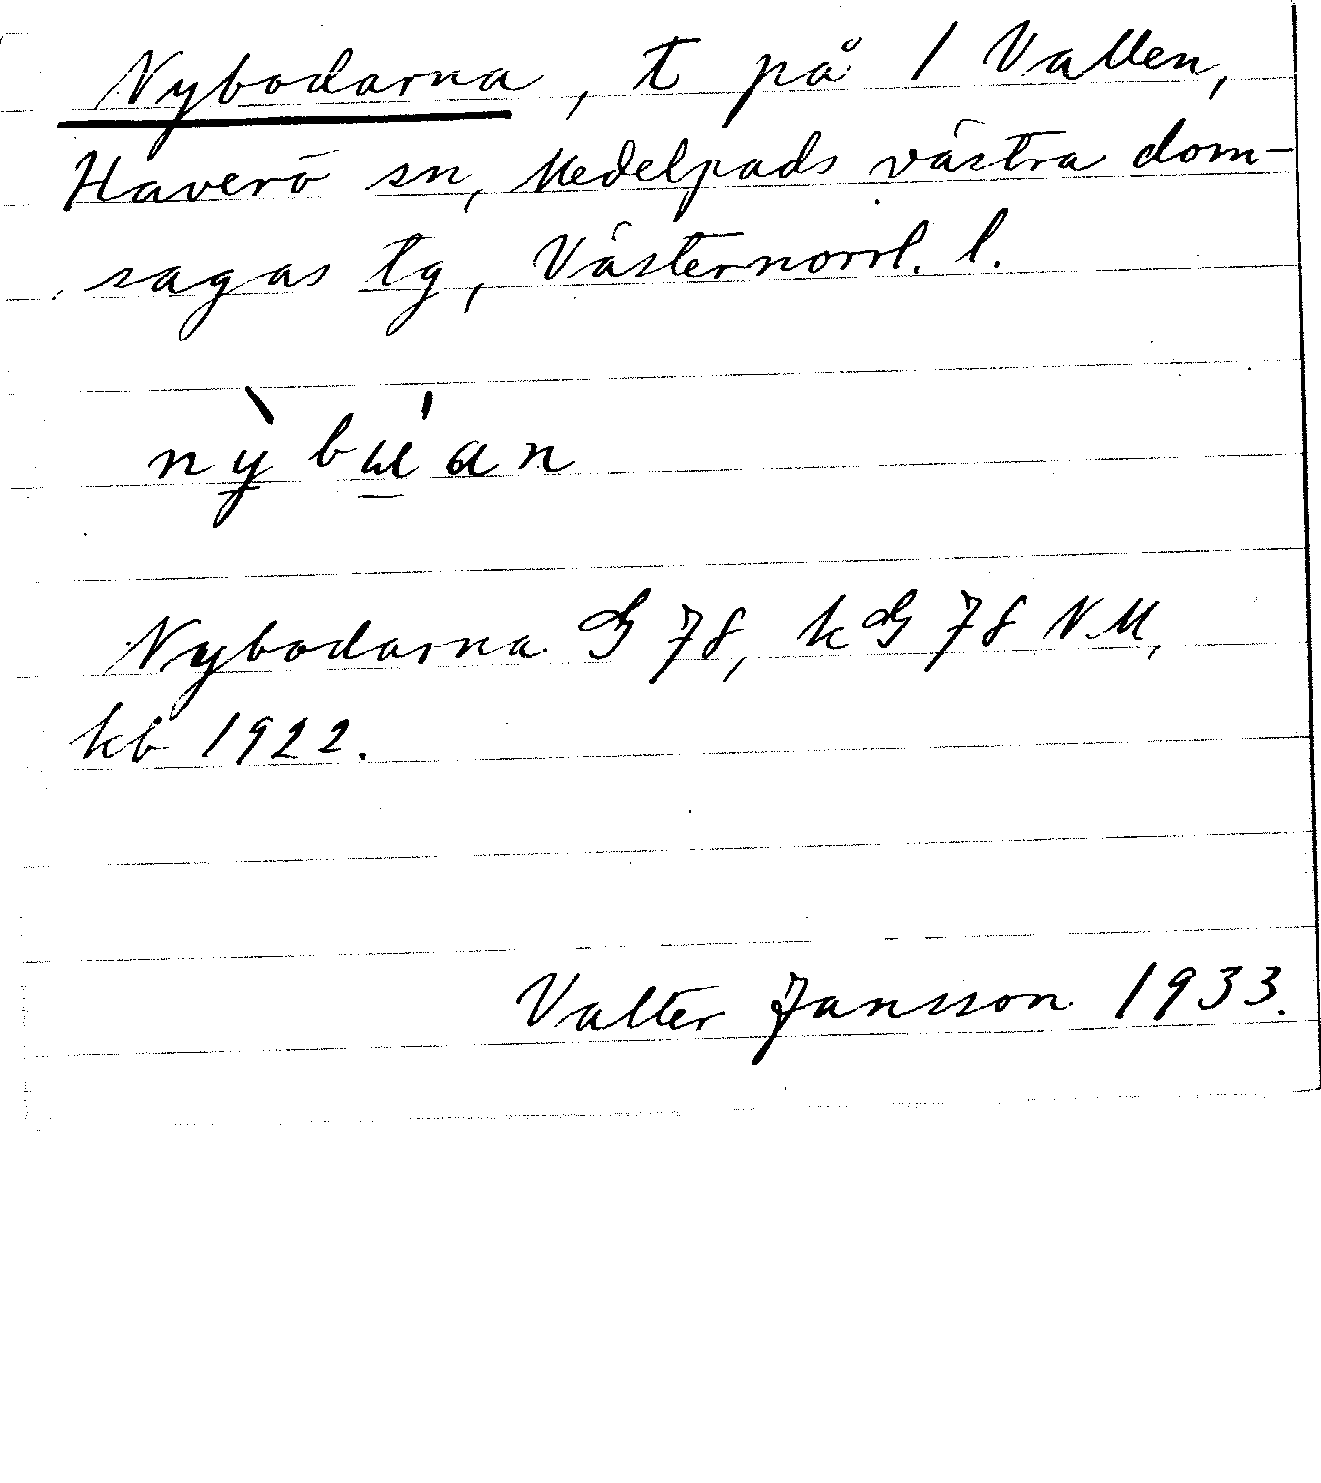 Nybodarna, t på 1 Vallen,
Haverö sn, Medelpads västra dom-
sagas tg, Västernorrl. l.
nỳbɯ́an
Nybodarna G 78, kG 78 NM,
kb 1922.
Valter Jansson 1933.